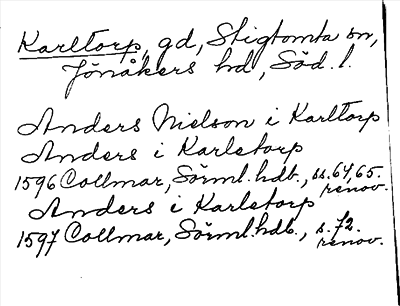 Karltorp, gd, Stigtomta sn,
Jönåkers hd, Söd. l.
Anders Nielson i Karltorp
Anders i Karletorp
1596 Collmar, Sörml. hdb., ss. 64, 65.
renov.
Anders i Karletorp
1597 Collmar, Sörml. hdb., s. 72.
renov.